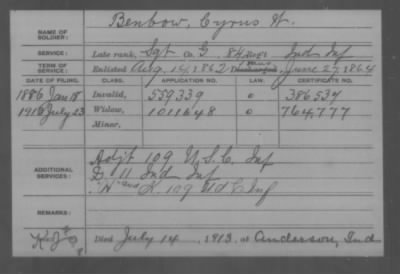 NAME OF SOLDIER: Benbow, Cyrus W.
SERVICE: Late rank, Sgt Co. G, 84 Reg't Ind Inf
TERM OF SERVICE: Enlisted Aug. 14, 1862 Discharged, June 27, 1864
DATE OF FILING. CLASS. APPLICATION NO. LAW. CERTIFICATE NO.
1886 Jan 18 Invalid, 559339 o 386534
1913 July 23 Widow, 1011648 o 764,777
Minor,
ADDITIONAL SERVICES: Adjt 109 U.S.C. Inf
D 11 Ind Inf
K. 109 Inf
REMARKS:
Died July 14, 1913, at Anderson, Ind